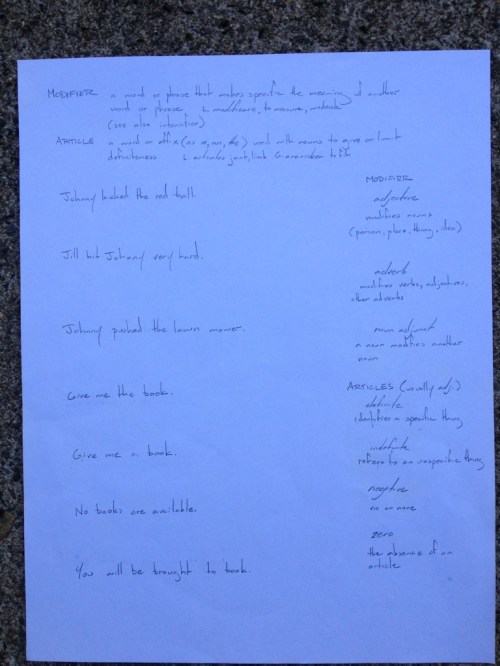 MODIFIER a word or phrase that makes specific the meaning of another
word or phrase L modificare, to measure, moderate
(see also intensifier)
ARTICLE a word or affix (as a, an, the) used with nouns to give or limit
definiteness L articulus joint, link G
Johnny kicked the red ball.
MODIFIER
adjective
modifies nouns
(person, place, thing, idea)
Jill hit Johnny very hard.
adverb
modifies verbs, adjectives,
other adverbs
Johnny pushed the lawn mower.
noun adjunct
a noun modifies another
noun
Give me the book.
ARTICLES (usually adj.)
definite
identifies a specific thing
Give me a book.
indefinite
refers to an unspecific thing
No books are available.
negative
no or none
You will be brought to book.
zero
the absence of an
article